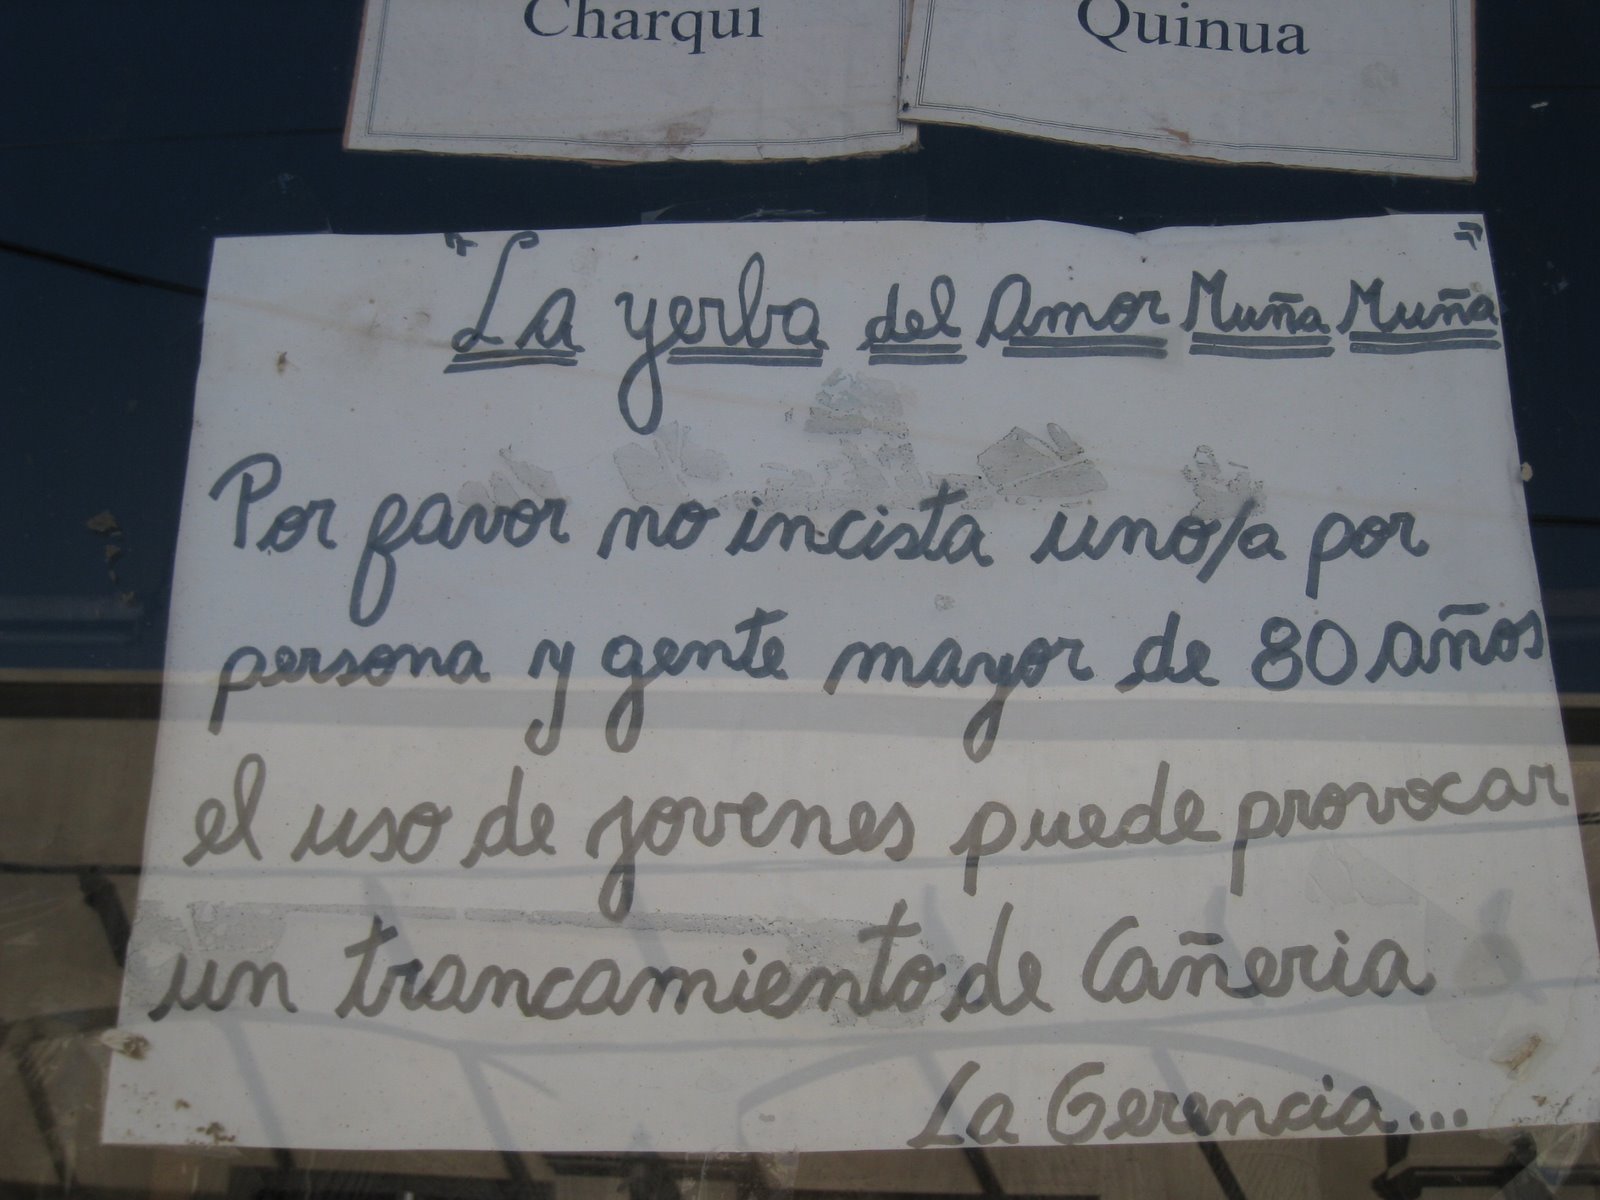 Charqui
Quinua
"La yerba del Amor Muña Muña"
Por favor no incista uno/a por
persona y gente mayor de 80 años
el uso de jovenes puede provocar
un trancamiento de Cañeria
La Gerencia...